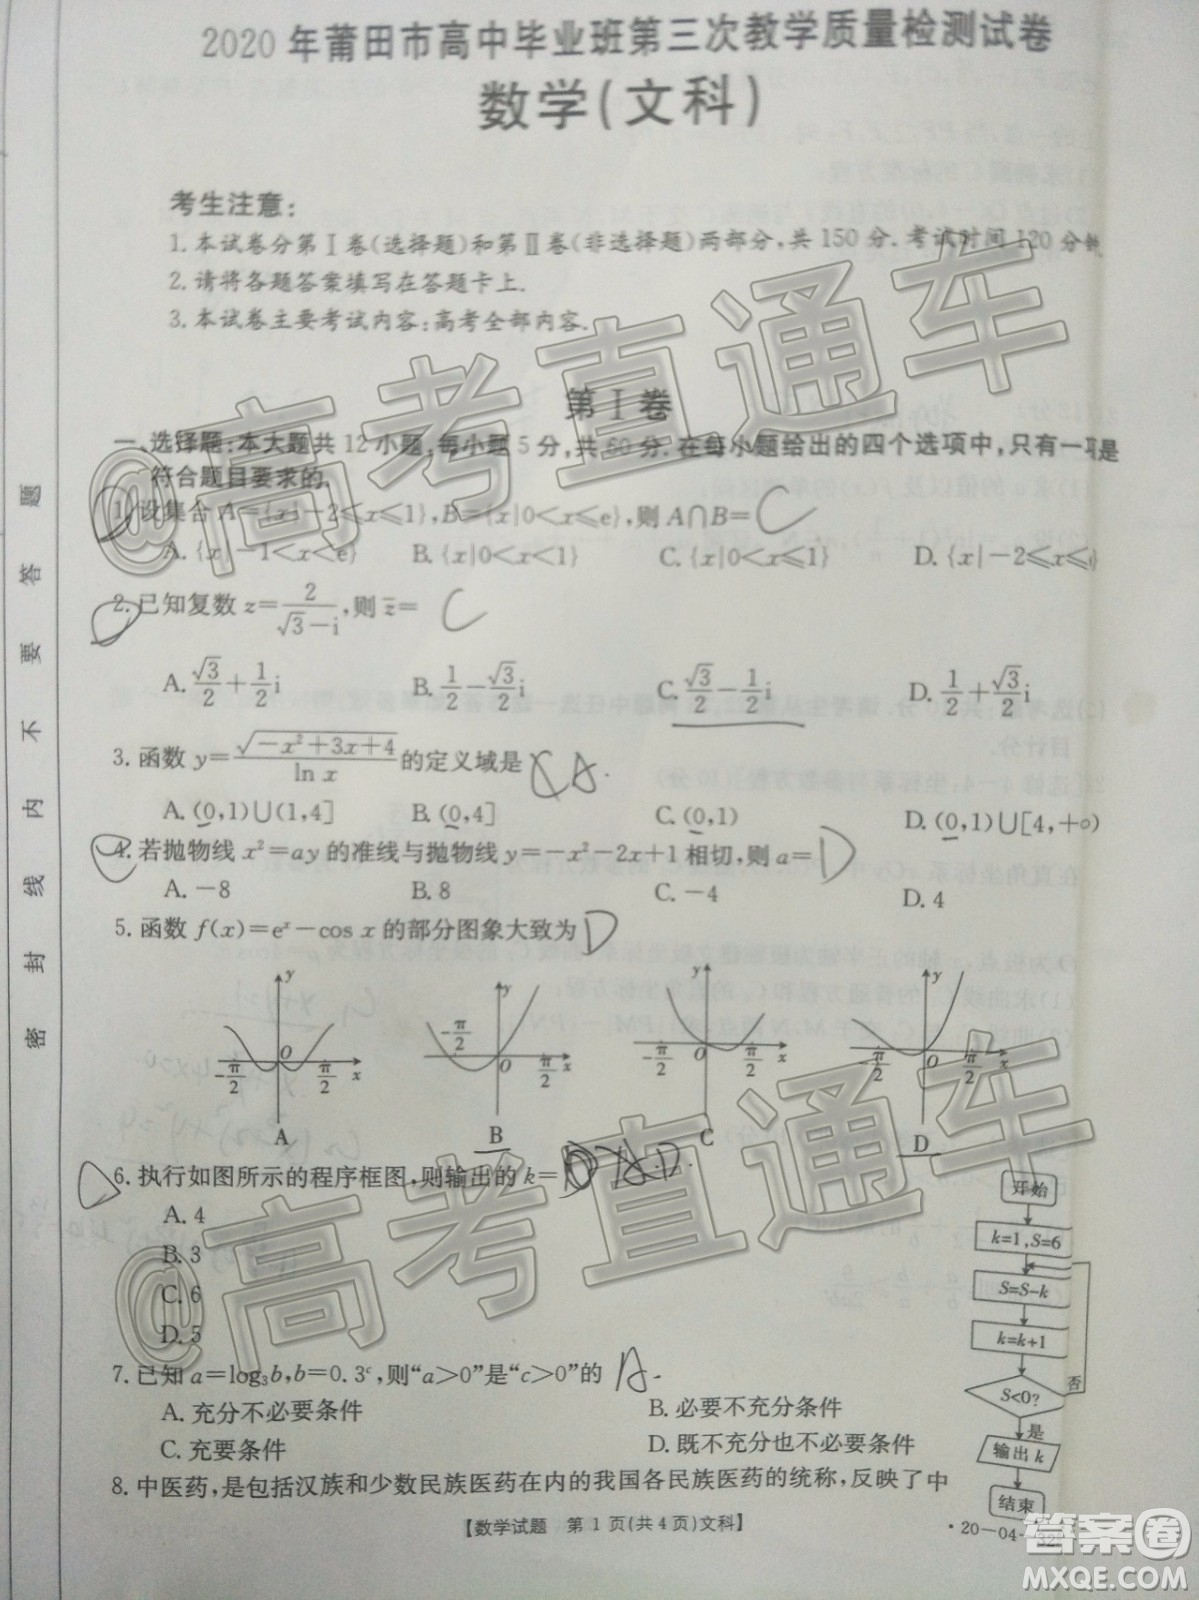 2020年莆田市高中毕业班第三次教学质量检测试卷
数学(文科)
考生注意:
1.本试卷分第Ⅰ卷(选择题)和第Ⅱ卷(非选择题)两部分,共150分.考试时间120分钟
2.请将各题答案填写在答题卡上.
3.本试卷主要考试内容:高考全部内容.
第Ⅰ卷
一、选择题:本大题共12小题,每小题5分,共60分.在每小题给出的四个选项中,只有一项是
符合题目要求的.
1.设集合A={x|-2≤x≤1},B={x|0<x≤e},则A∩B= C
A.{x|-1<x<e} B.{x|0<x<1} C.{x|0<x≤1} D.{x|-2≤x≤
2.已知复数z=2/(√3-i),则z̄= C
A.√3/2+1/2i B.1/2-√3/2i C.√3/2-1/2i D.1/2+√3/2i
3.函数y=√(-x²+3x+4)/ln x的定义域是 A.
A.(0,1)∪(1,4] B.(0,4] C.(0,1) D.(0,1)∪[4,+∞)
4.若抛物线x²=ay的准线与抛物线y=-x²-2x+1相切,则a= D
A.-8 B.8 C.-4 D.4
5.函数f(x)=eˣ-cos x的部分图象大致为 D
y O x -π/2 π/2 A
y O x -π/2 π/2 B
y O x -π/2 π/2 C
y O x -π/2 π/2 D
6.执行如图所示的程序框图,则输出的k= D.
A.4
B.3
C.6
D.5
开始
k=1,S=6
S=S-k
k=k+1
S<0?
否
是
输出k
结束
7.已知a=log₃b,b=0.3ᶜ,则“a>0”是“c>0”的 A.
A.充分不必要条件 B.必要不充分条件
C.充要条件 D.既不充分也不必要条件
8.中医药,是包括汉族和少数民族医药在内的我国各民族医药的统称,反映了中
【数学试题 第1页(共4页)文科】
·20-04-
密封线内不要答题
@高考直通车
@高考直通车
答案卷
MXQE.COM